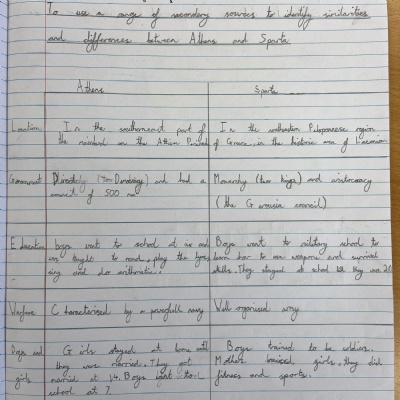 To use a range of secondary sources to identify similarities
and differences between Athens and Sparta
Athens
Sparta
Location
In the southernmost part of
the mainland on the Attica
In the southeastern Peloponnese region
of Greece, in the historic area of Laconian
Government
Directly (The Democracy) and had a
council of 500 men
Monarchy (two kings) and aristocracy
(the Gerousia council)
Education
boys went to school at six and
was taught to read, play the lyre,
sing and do arithmetic.
Boys went to military school to
learn how to use weapons and survival
skills. They stayed at school till they was 20
Warfare
Characterised by a powerfull navy
Well organised army
Boys and
girls
Girls stayed at home until
they were married. They got
married at 14. Boys went to
school at 7.
Boys trained to be soldiers.
Mothers trained girls, they did
fitness and sports.